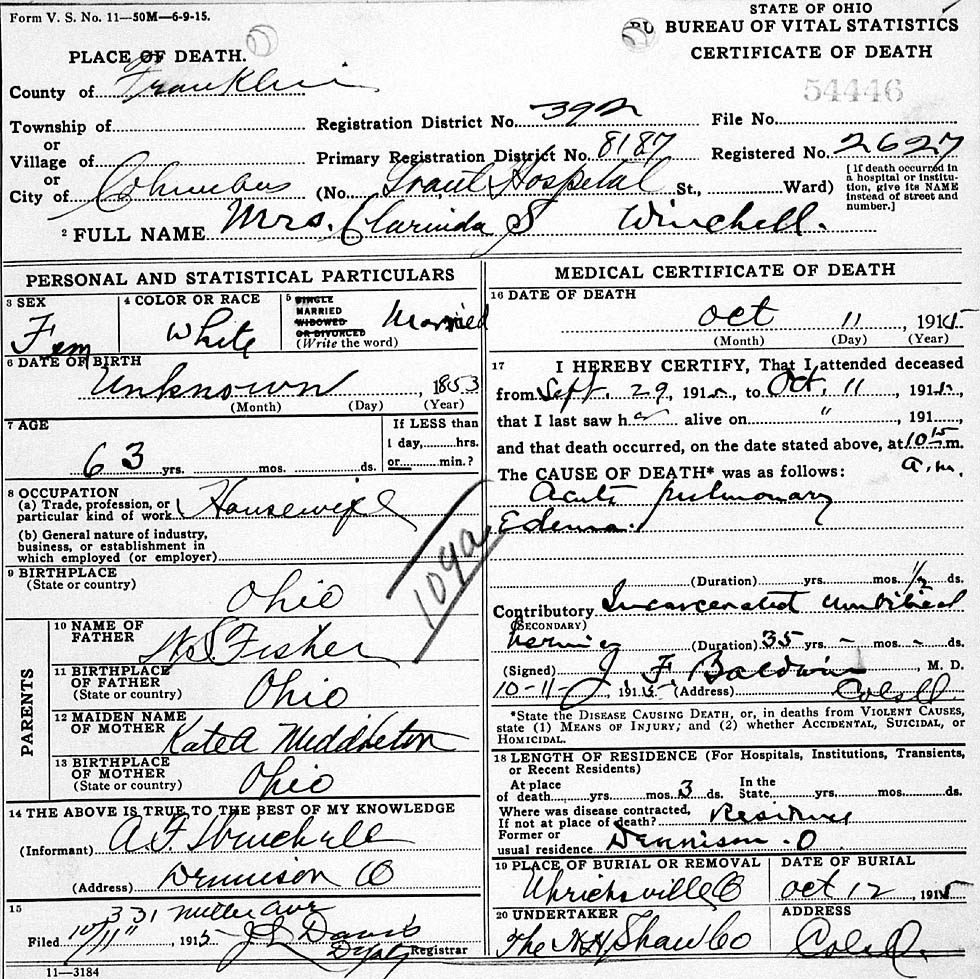 Form V. S. No. 11—50M—6-9-15.
STATE OF OHIO
BUREAU OF VITAL STATISTICS
CERTIFICATE OF DEATH
PLACE OF DEATH.
County of Franklin
54446
Township of
Registration District No. 392
File No.
or
Village of
Primary Registration District No. 8187
Registered No. 2627
or
City of Columbus
(No. Grant Hospital St., Ward)
[If death occurred in
a hospital or institu-
tion, give its NAME
instead of street and
number.]
2 FULL NAME Mrs. Clarinda S Winchell.
PERSONAL AND STATISTICAL PARTICULARS
3 SEX
Fem
4 COLOR OR RACE
White
5 SINGLE
MARRIED
WIDOWED
OR DIVORCED
(Write the word)
Married
6 DATE OF BIRTH
Unknown, 1853
(Month) (Day) (Year)
7 AGE
63 yrs. mos. ds.
If LESS than
1 day, hrs.
or min.?
8 OCCUPATION
(a) Trade, profession, or
particular kind of work Housewife
(b) General nature of industry,
business, or establishment in
which employed (or employer)
109a
9 BIRTHPLACE
(State or country)
Ohio
PARENTS
10 NAME OF
FATHER
Fisher
11 BIRTHPLACE
OF FATHER
(State or country)
Ohio
12 MAIDEN NAME
OF MOTHER
Kate A Middleton
13 BIRTHPLACE
OF MOTHER
(State or country)
Ohio
14 THE ABOVE IS TRUE TO THE BEST OF MY KNOWLEDGE
(Informant) A. F. Winchell
(Address) Dennison O
331 Miller Ave
15
Filed 10/11", 1915 J L Davis
Dpty Registrar
11—3184
MEDICAL CERTIFICATE OF DEATH
16 DATE OF DEATH
Oct 11, 1915
(Month) (Day) (Year)
17 I HEREBY CERTIFY, That I attended deceased
from Sept. 29, 1915, to Oct. 11, 1915,
that I last saw her alive on " , 191
and that death occurred, on the date stated above, at 10 15 m.
a.m.
The CAUSE OF DEATH* was as follows:
Acute pulmonary
Edema.
(Duration) yrs. mos. 1/2 ds.
Contributory Incarcerated umbilical
(SECONDARY)
hernia (Duration) 35 yrs. – mos. – ds.
(Signed) J. F. Baldwin, M. D.
10-11, 1915 (Address) Cols O
*State the DISEASE CAUSING DEATH, or, in deaths from VIOLENT CAUSES,
state (1) MEANS OF INJURY; and (2) whether ACCIDENTAL, SUICIDAL, or
HOMICIDAL.
18 LENGTH OF RESIDENCE (For Hospitals, Institutions, Transients,
or Recent Residents)
At place
of death yrs. mos. 3 ds.
In the
State yrs. mos. ds.
Where was disease contracted,
If not at place of death? Residence
Former or
usual residence Dennison. O
19 PLACE OF BURIAL OR REMOVAL
Uhrichsville O
DATE OF BURIAL
Oct 12, 1915
20 UNDERTAKER
The Shaw Co
ADDRESS
Cols O.